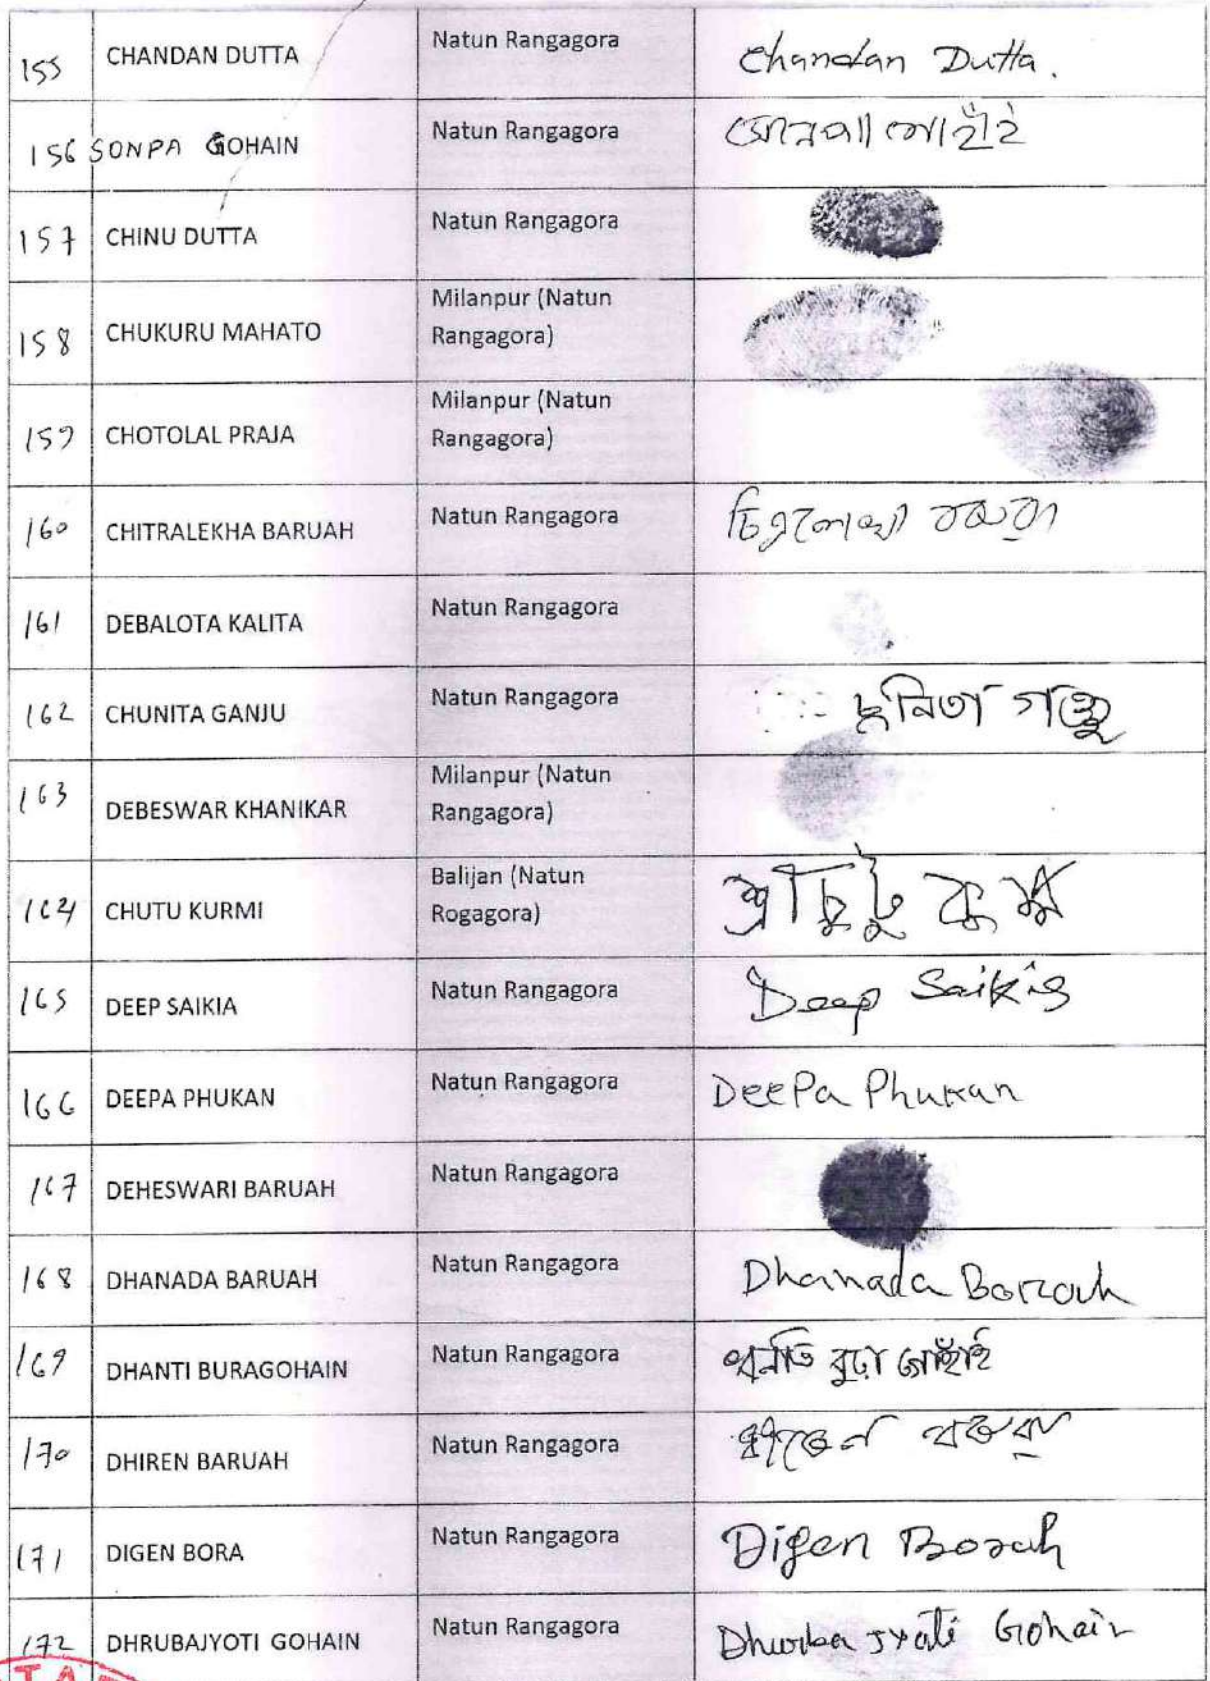 155 CHANDAN DUTTA Natun Rangagora Chandan Dutta.
156 SONPA GOHAIN Natun Rangagora
157 CHINU DUTTA Natun Rangagora
158 CHUKURU MAHATO Milanpur (Natun
Rangagora)
159 CHOTOLAL PRAJA Milanpur (Natun
Rangagora)
160 CHITRALEKHA BARUAH Natun Rangagora
161 DEBALOTA KALITA Natun Rangagora
162 CHUNITA GANJU Natun Rangagora ছুনিতা গঞ্জু
163 DEBESWAR KHANIKAR Milanpur (Natun
Rangagora)
164 CHUTU KURMI Balijan (Natun
Rogagora) শ্ৰী চুটু কুৰ্মী
165 DEEP SAIKIA Natun Rangagora Deep Saikia
166 DEEPA PHUKAN Natun Rangagora DeePa Phukan
167 DEHESWARI BARUAH Natun Rangagora
168 DHANADA BARUAH Natun Rangagora Dhanada Borouh
169 DHANTI BURAGOHAIN Natun Rangagora ধনতি বুঢ়া গোহাঁই
170 DHIREN BARUAH Natun Rangagora
171 DIGEN BORA Natun Rangagora Digen Borah
172 DHRUBAJYOTI GOHAIN Natun Rangagora Dhurba Jyoti Gohain
TA